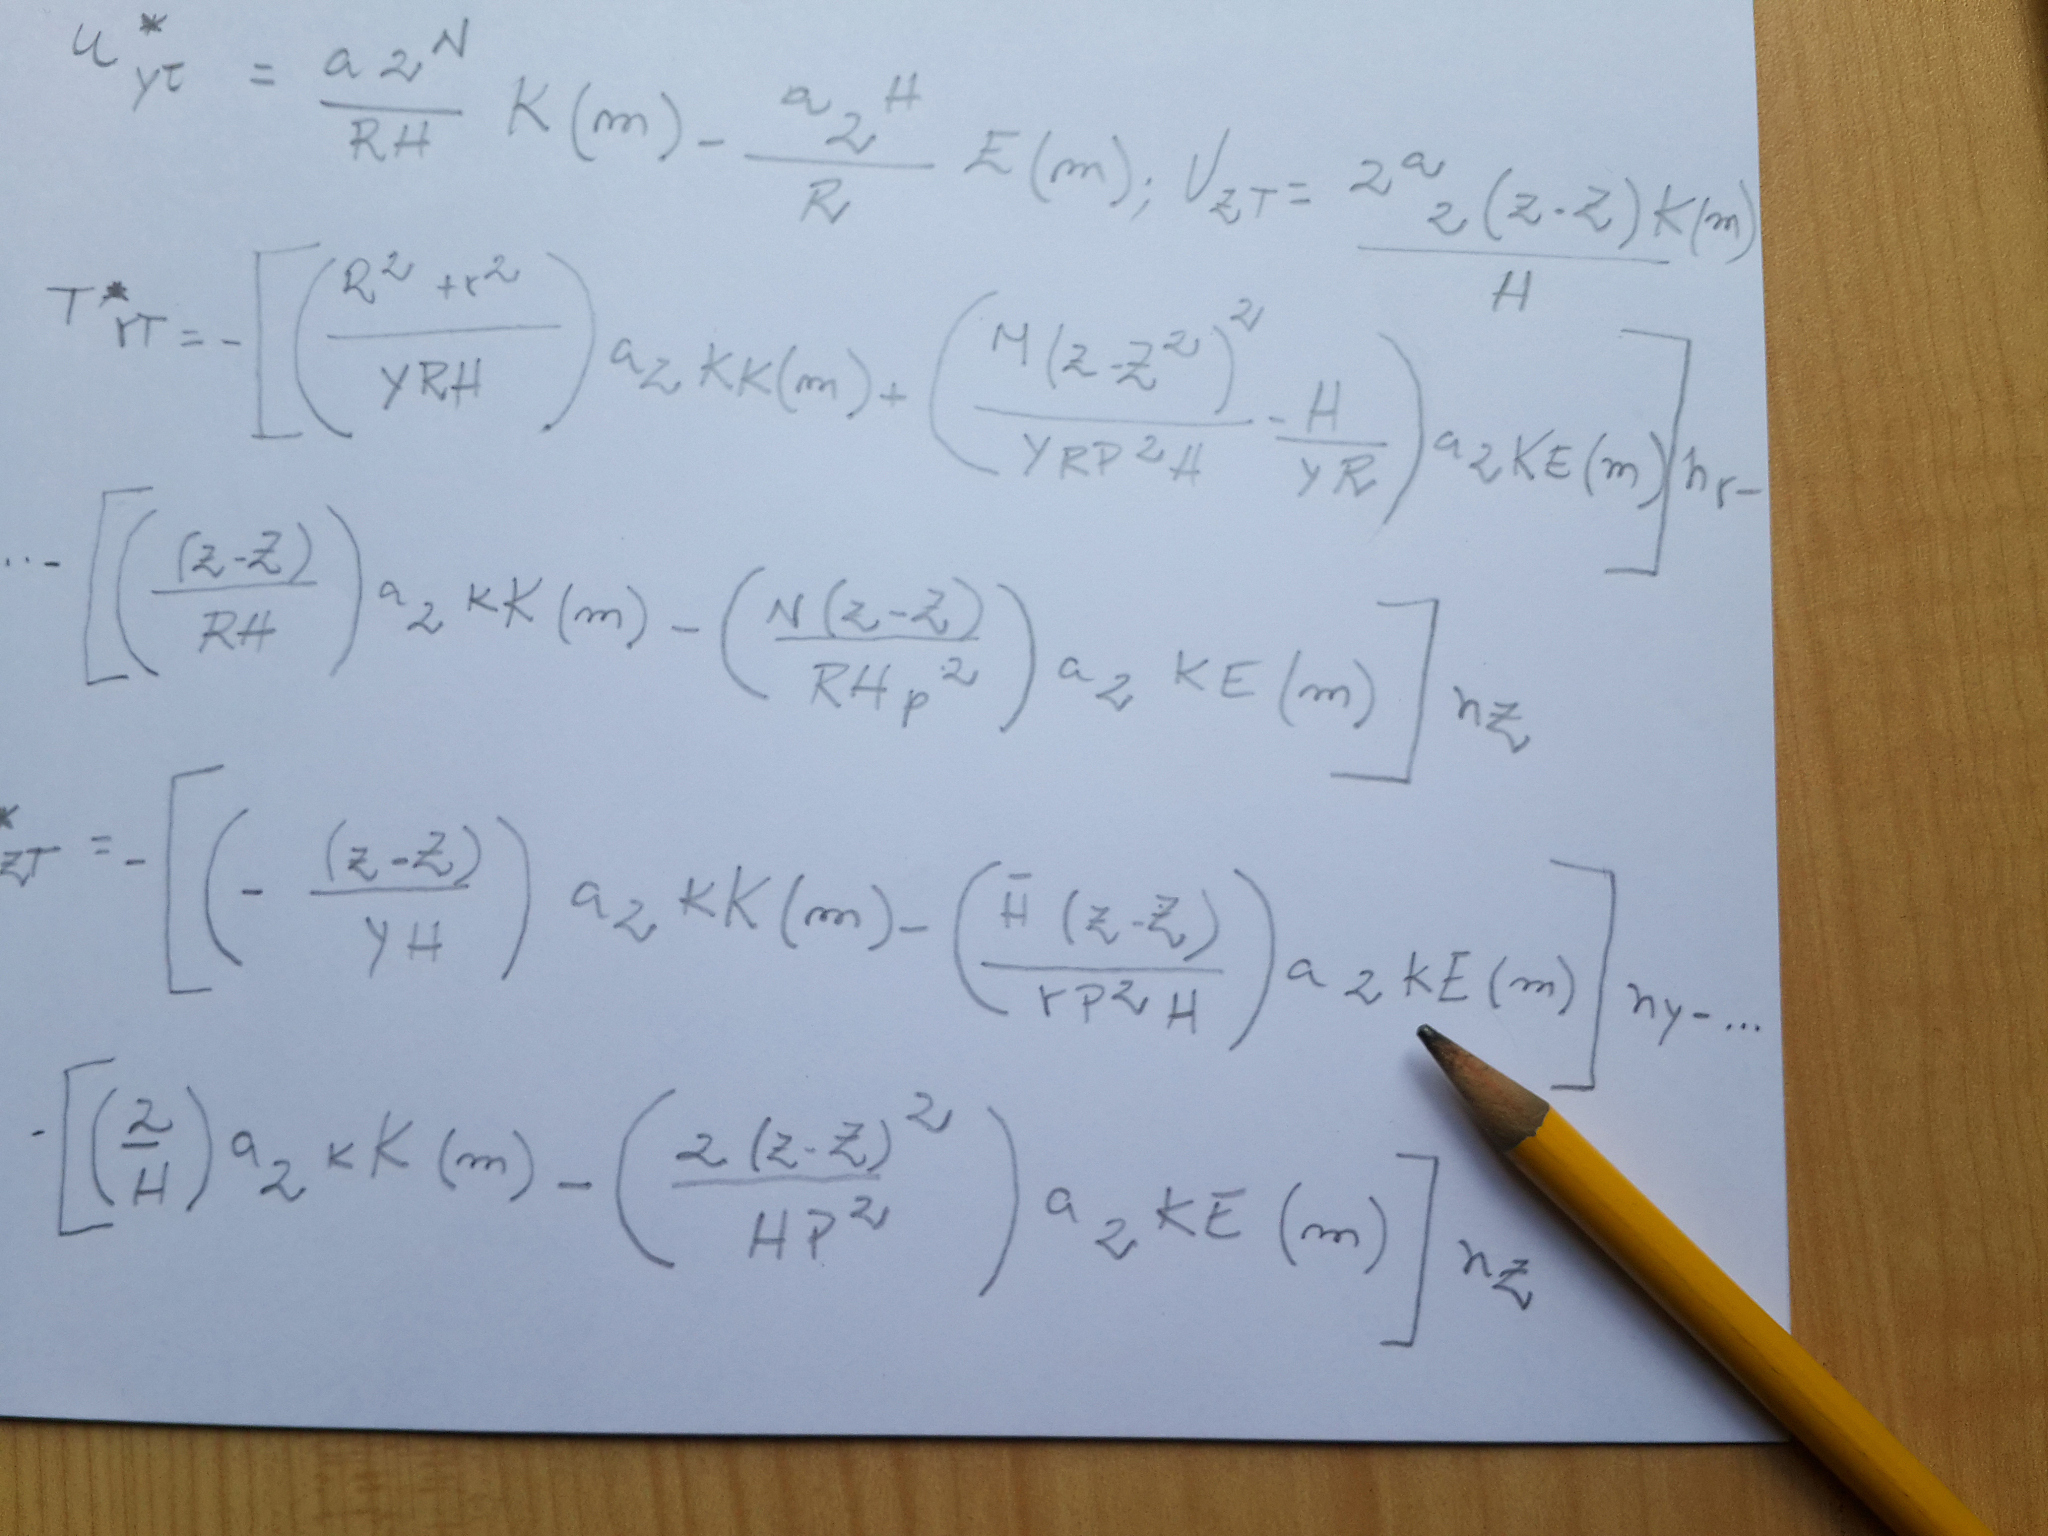 u*yτ = a2^N/RH K(m) - a2^H/R E(m); VzT = 2^a 2(z-Z)K(m)/H
T*rT = -[((R²+r²)/YRH) a2 KK(m) + (M(z-Z²)²/YRP²H - H/YR) a2 KE(m)] nr-
...-[((z-Z)/RH) a2 KK(m) - (N(z-Z)/RHp²) a2 KE(m)] nz
*zT = -[(-(z-Z)/YH) a2 KK(m) - (H̄(z-Z)/rP²H) a2 KE(m)] ny-...
-[(2/H) a2 KK(m) - (2(z-Z)²/HP²) a2 KE(m)] nz